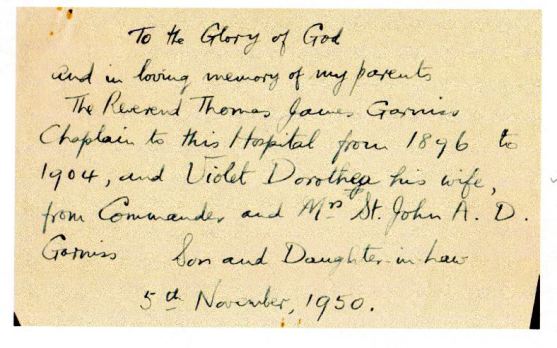 To the Glory of God
and in loving memory of my parents
The Reverend Thomas James Garniss
Chaplain to this Hospital from 1896 to
1904, and Violet Dorothea his wife,
from Commander and Mrs St. John A. D.
Garniss Son and Daughter-in-Law
5th November, 1950.